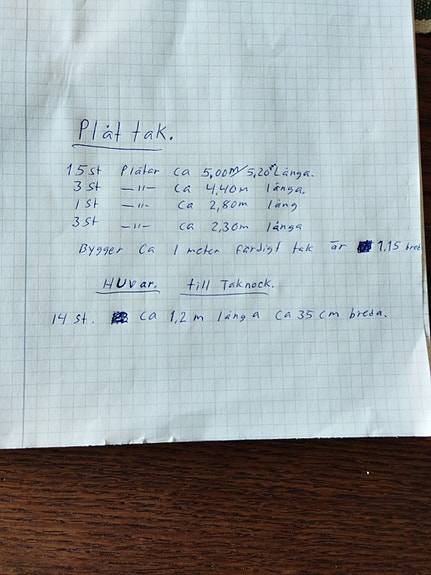 Plåt tak.
15 st Plåtar ca 5,00m/5,20m Långa.
3 st —"— ca 4,40m långa.
1 st —"— ca 2,80m lång
3 st —"— ca 2,30m långa
Bygger ca 1 meter färdigt tak är 1,15 bred
Huvar. till Taknock.
14 st. ca 1,2 m långa ca 35 cm breda.